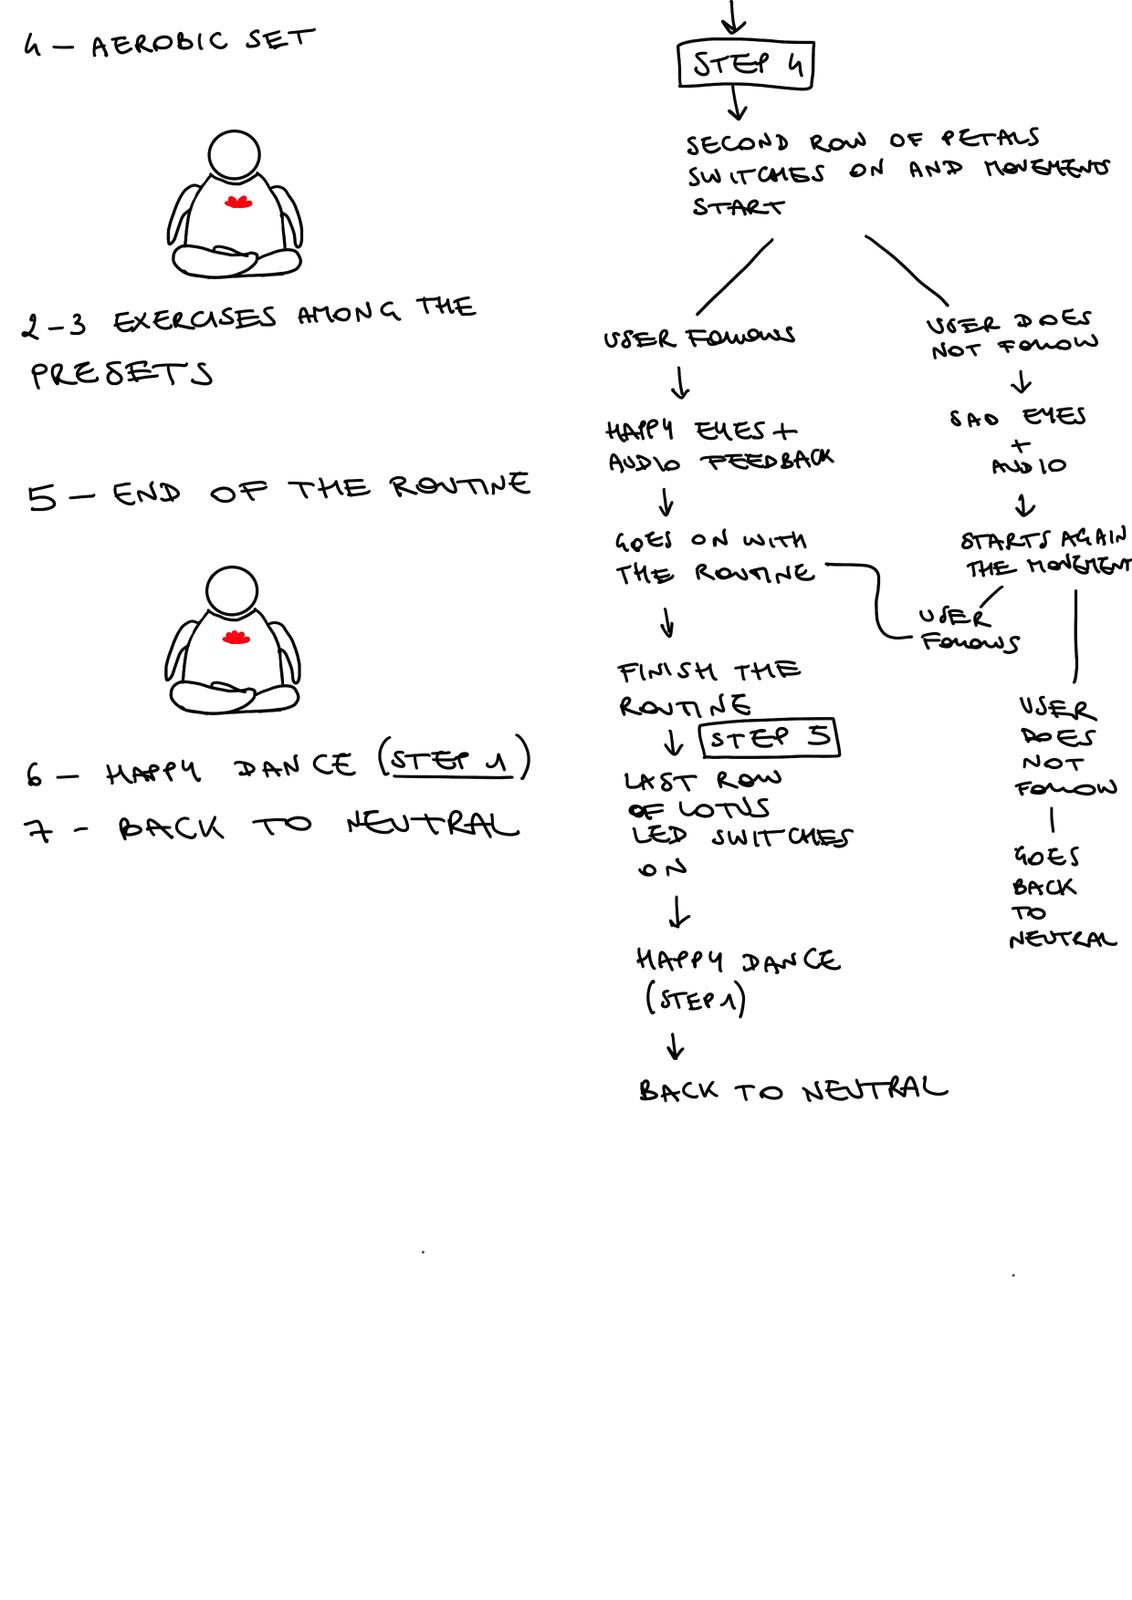 4 - AEROBIC SET
2-3 EXERCISES AMONG THE
PRESETS
5 - END OF THE ROUTINE
6 - HAPPY DANCE (STEP 1)
7 - BACK TO NEUTRAL
STEP 4
SECOND ROW OF PETALS
SWITCHES ON AND MOVEMENTS
START
USER FOLLOWS
HAPPY EYES +
AUDIO FEEDBACK
GOES ON WITH
THE ROUTINE
FINISH THE
ROUTINE
STEP 5
LAST ROW
OF LOTUS
LED SWITCHES
ON
HAPPY DANCE
(STEP 1)
BACK TO NEUTRAL
USER DOES
NOT FOLLOW
SAD EYES
+
AUDIO
STARTS AGAIN
THE MOVEMENT
USER
FOLLOWS
USER
DOES
NOT
FOLLOW
GOES
BACK
TO
NEUTRAL